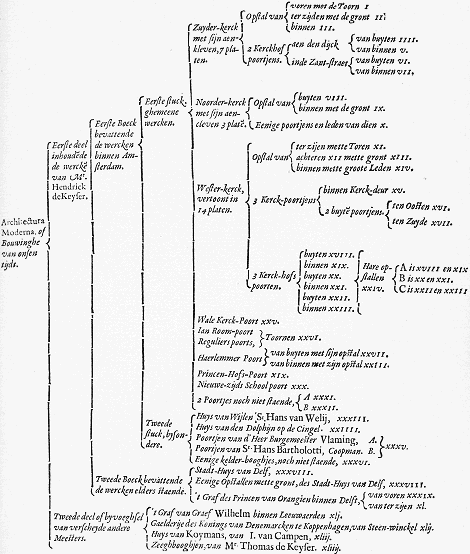 voren met de Toorn I
Opstal van ter zijden met de gront II.
binnen III.
Zuyder-kerck
met sijn aen-
kleven, 7 pla-
ten.
2 Kerckhof
poortjens.
aen den dijck
van buyten IIII.
van binnen V.
inde Zant-straet
van buyten VI.
van binnen VII.
Eerste stuck,
ghemeene
wercken.
Noorder-kerck
met sijn aen-
cleven 3 platē.
Opstal van
buyten VIII.
binnen met de gront IX.
Eenige poortjens en leden van dien X.
Eerste Boeck
bevattende
de wercken
binnen Am-
sterdam.
Eerste deel
inhoudēde
de werckē
van Mr.
Hendrick
de Keyser.
Wester-kerck,
vertoont in
14 platen.
Opstal van
ter zijen mette Toren XI.
achteren XII mette gront XIII.
binnen mette groote Leden XIV.
3 Kerck-poortjens
binnen Kerck-deur XV.
2 buytē poortjens
ten Oosten XVI.
ten Zuyde XVII.
Architectura
Moderna, of
Bouwinghe
van onsen
tijdt.
3 Kerck-hofs
poorten.
buyten XVIII.
binnen XIX.
buyten XX.
binnen XXI.
buyten XXII.
binnen XXIII.
Hare op-
stallen
XXIV.
A is XVIII en XIX
B is XX en XXI.
C is XXII en XXIII
Wale Kerck-Poort XXV.
Ian Room-poort
Reguliers poorts,
Toornen XXVI.
Haerlemmer Poort
van buyten met sijn opstal XXVII.
van binnen met zijn opstal XXVIII.
Princen-Hofs-Poort XXIX.
Nieuwe-zijds School poort XXX.
2 Poortjes noch niet staende,
A XXXI.
B XXXII.
Tweede
stuck, byson-
dere.
Huys van Wijlen Sr. Hans van Welij, XXXIII.
Huys van den Dolphijn op de Cingel. XXXIIII.
Poortjen van d'Heer Burgemeester Vlaming, A.
Poortjen van Sr. Hans Bartholotti, Coopman. B.
XXXV.
Eenige kelder-booghjes, noch niet staende, XXXVI.
Tweede Boeck bevattende
de wercken elders staende.
Stadt-Huys van Delf, XXXVII.
Eenige Opstallen mette gront, des Stadt-Huys van Delf, XXXVIII.
't Graf des Princen van Orangien binnen Delft,
van voren XXXIX.
van ter zyden XL.
Tweede deel of byvoeghsel
van verscheyde andere
Meesters.
't Graf van Graef Wilhelm binnen Leeuwaerden XLI.
Gaelderije des Konings van Denemarcken te Koppenhagen, van Steen-winckel XLII.
Huys van Koymans, van I. van Campen, XLIII.
Zeeghbooghjen, van Mr. Thomas de Keyser. XLIIII.